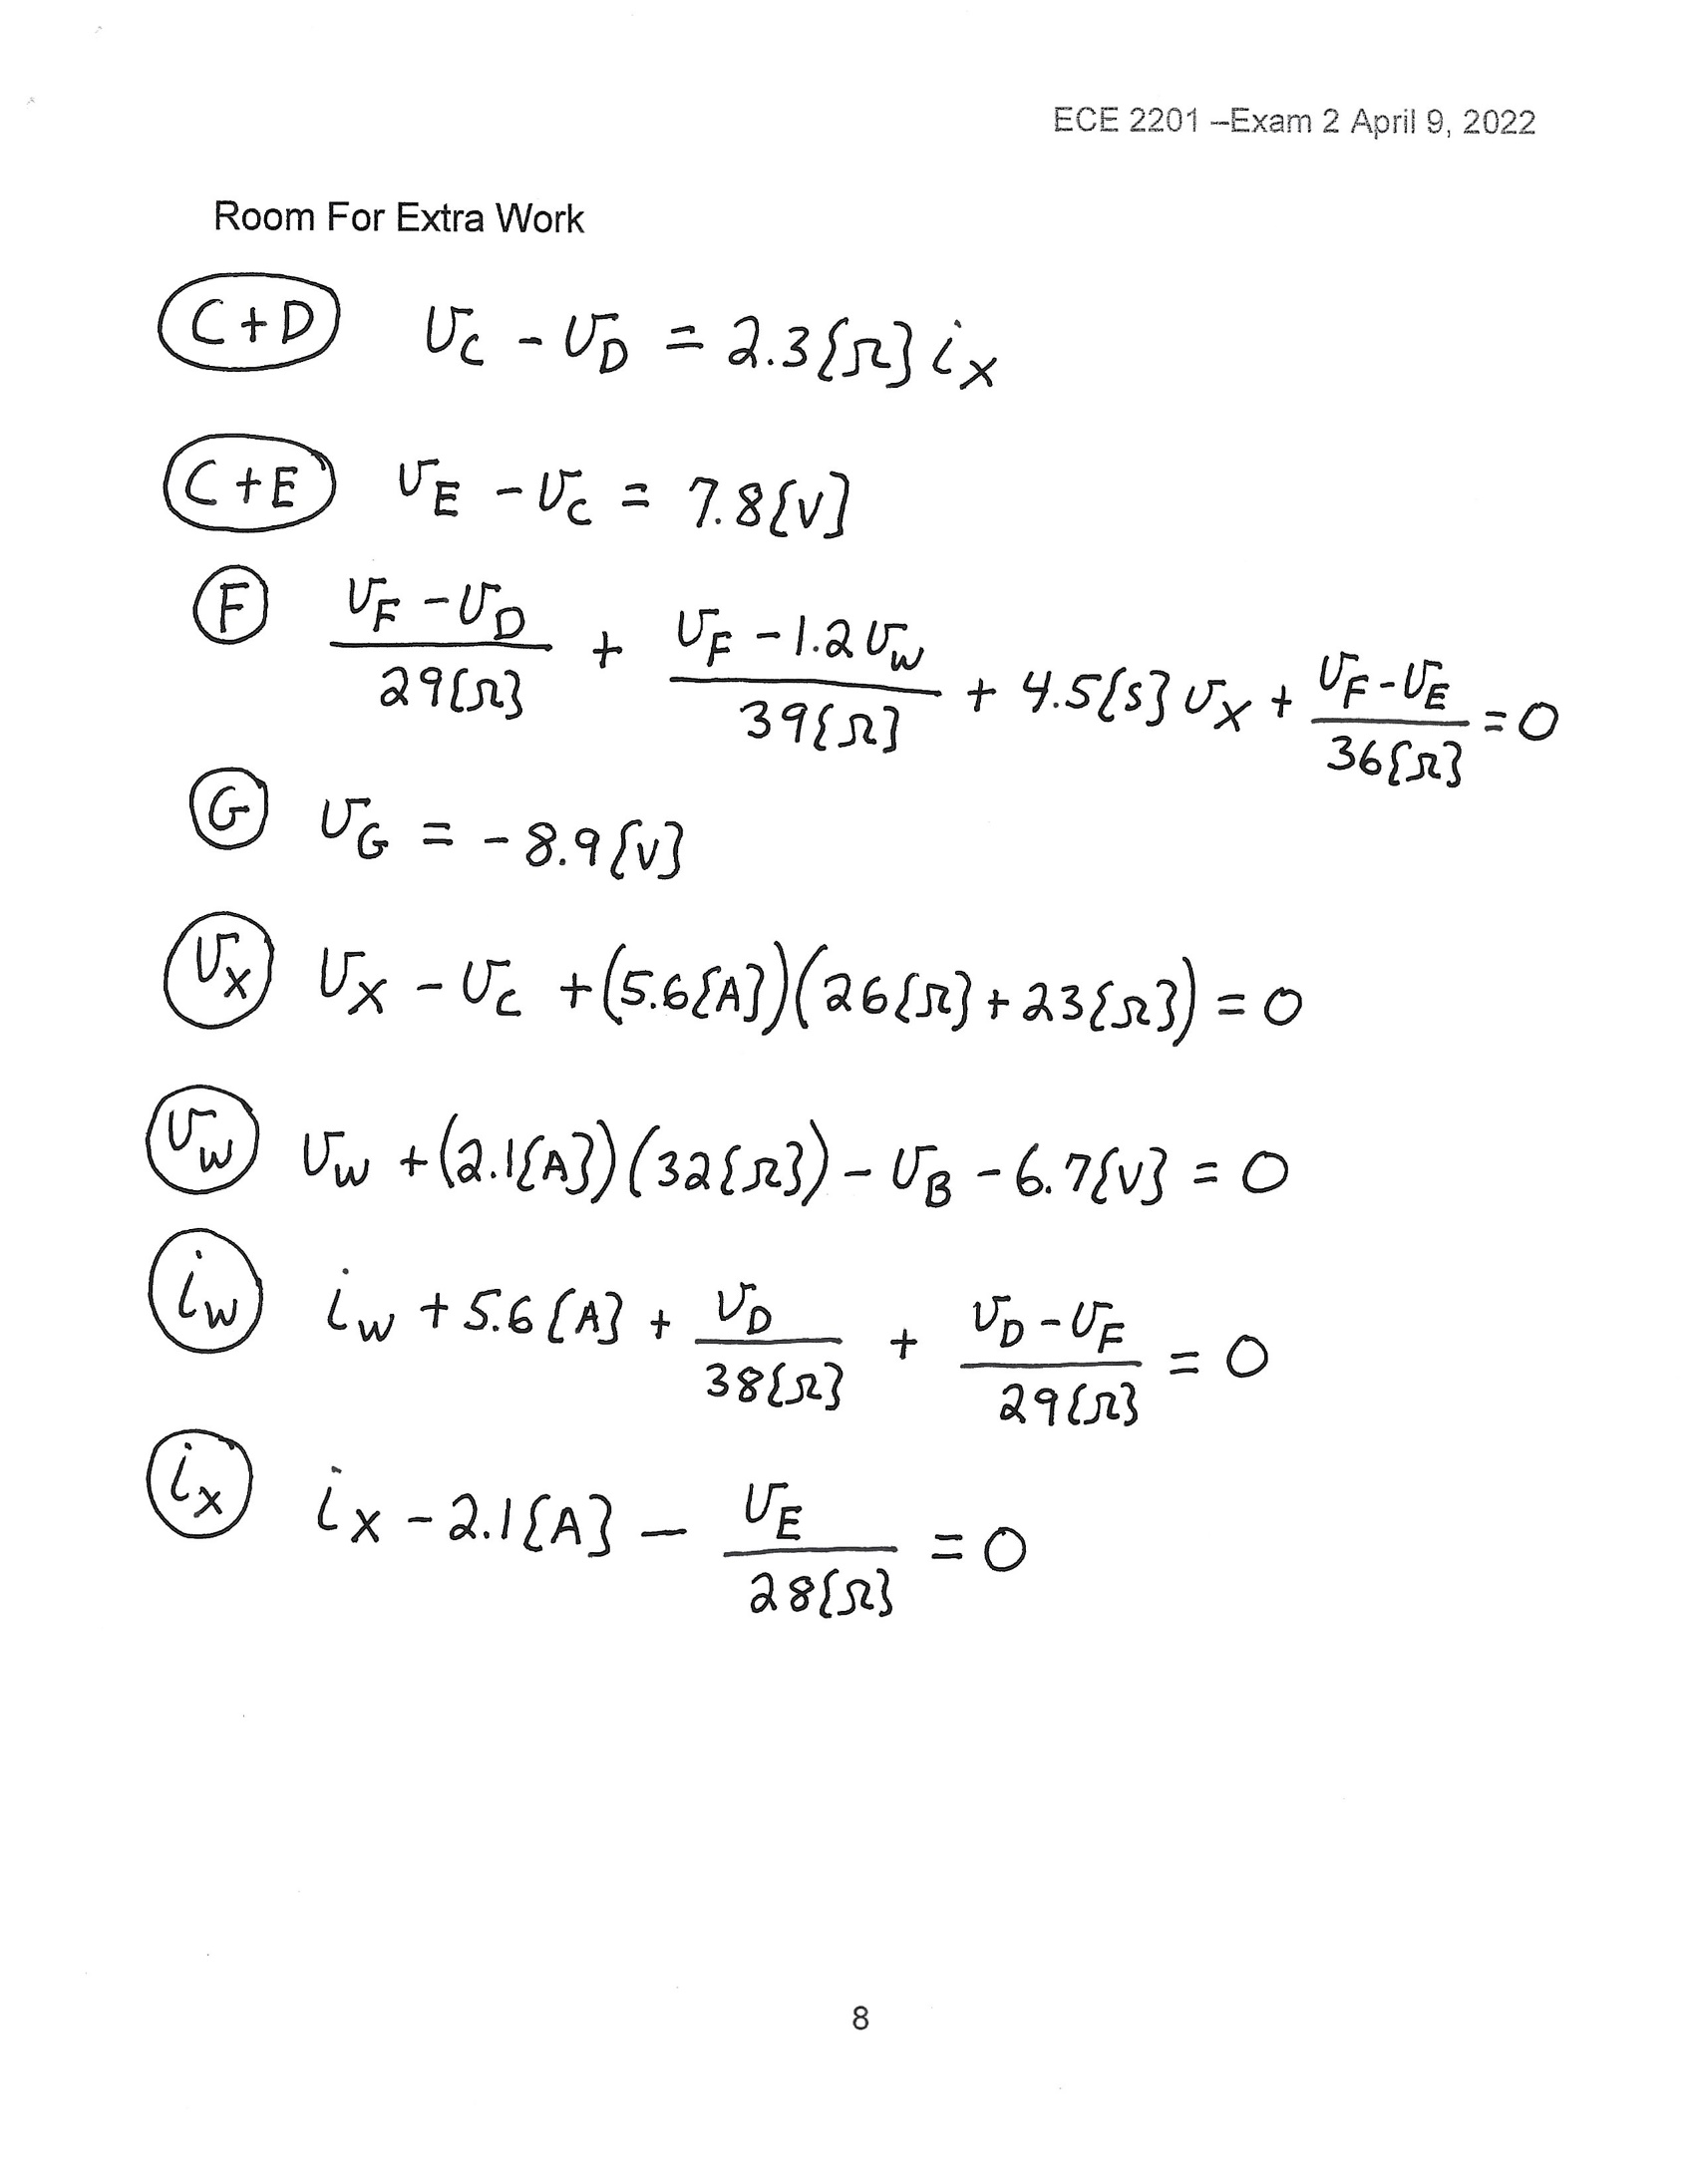 ECE 2201 –Exam 2 April 9, 2022
Room For Extra Work
(C+D) v_C - v_D = 2.3{Ω} i_X
(C+E) v_E - v_C = 7.8{V}
(F) (v_F - v_D)/29{Ω} + (v_F - 1.2 v_W)/39{Ω} + 4.5{S} v_X + (v_F - v_E)/36{Ω} = 0
(G) v_G = -8.9{V}
(v_X) v_X - v_C + (5.6{A})(26{Ω} + 23{Ω}) = 0
(v_W) v_W + (2.1{A})(32{Ω}) - v_B - 6.7{V} = 0
(i_W) i_W + 5.6{A} + v_D/38{Ω} + (v_D - v_F)/29{Ω} = 0
(i_X) i_X - 2.1{A} - v_E/28{Ω} = 0
8